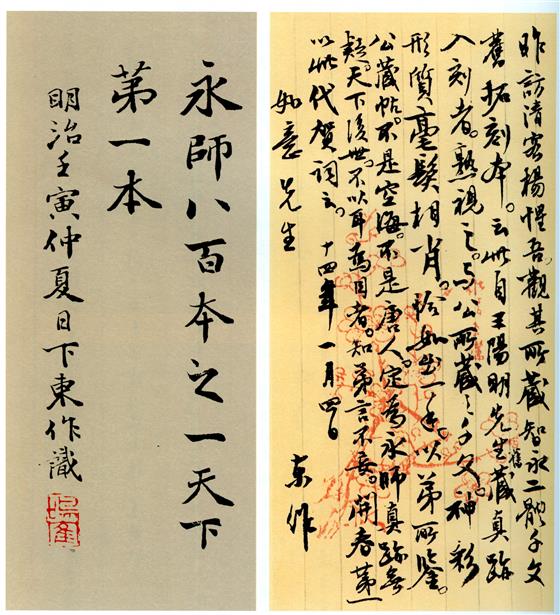 昨訪清客楊惺吾。觀其所藏智永二體千文
舊拓刻本。云此自王陽明先生舊藏真跡
入刻者。熟視之。与公所藏之千文。神彩
形質毫髮相肖。恰如出一手。以弟所鑒。
公藏帖。不是空海。不是唐人。定為永師真跡無
疑。天下後世。不以耳為目者。知弟言不妄。開春第一
以此代賀詞云。 十四年一月四日 東作
如意先生
永師八百本之一天下
第一本
明治壬寅仲夏日下東作識